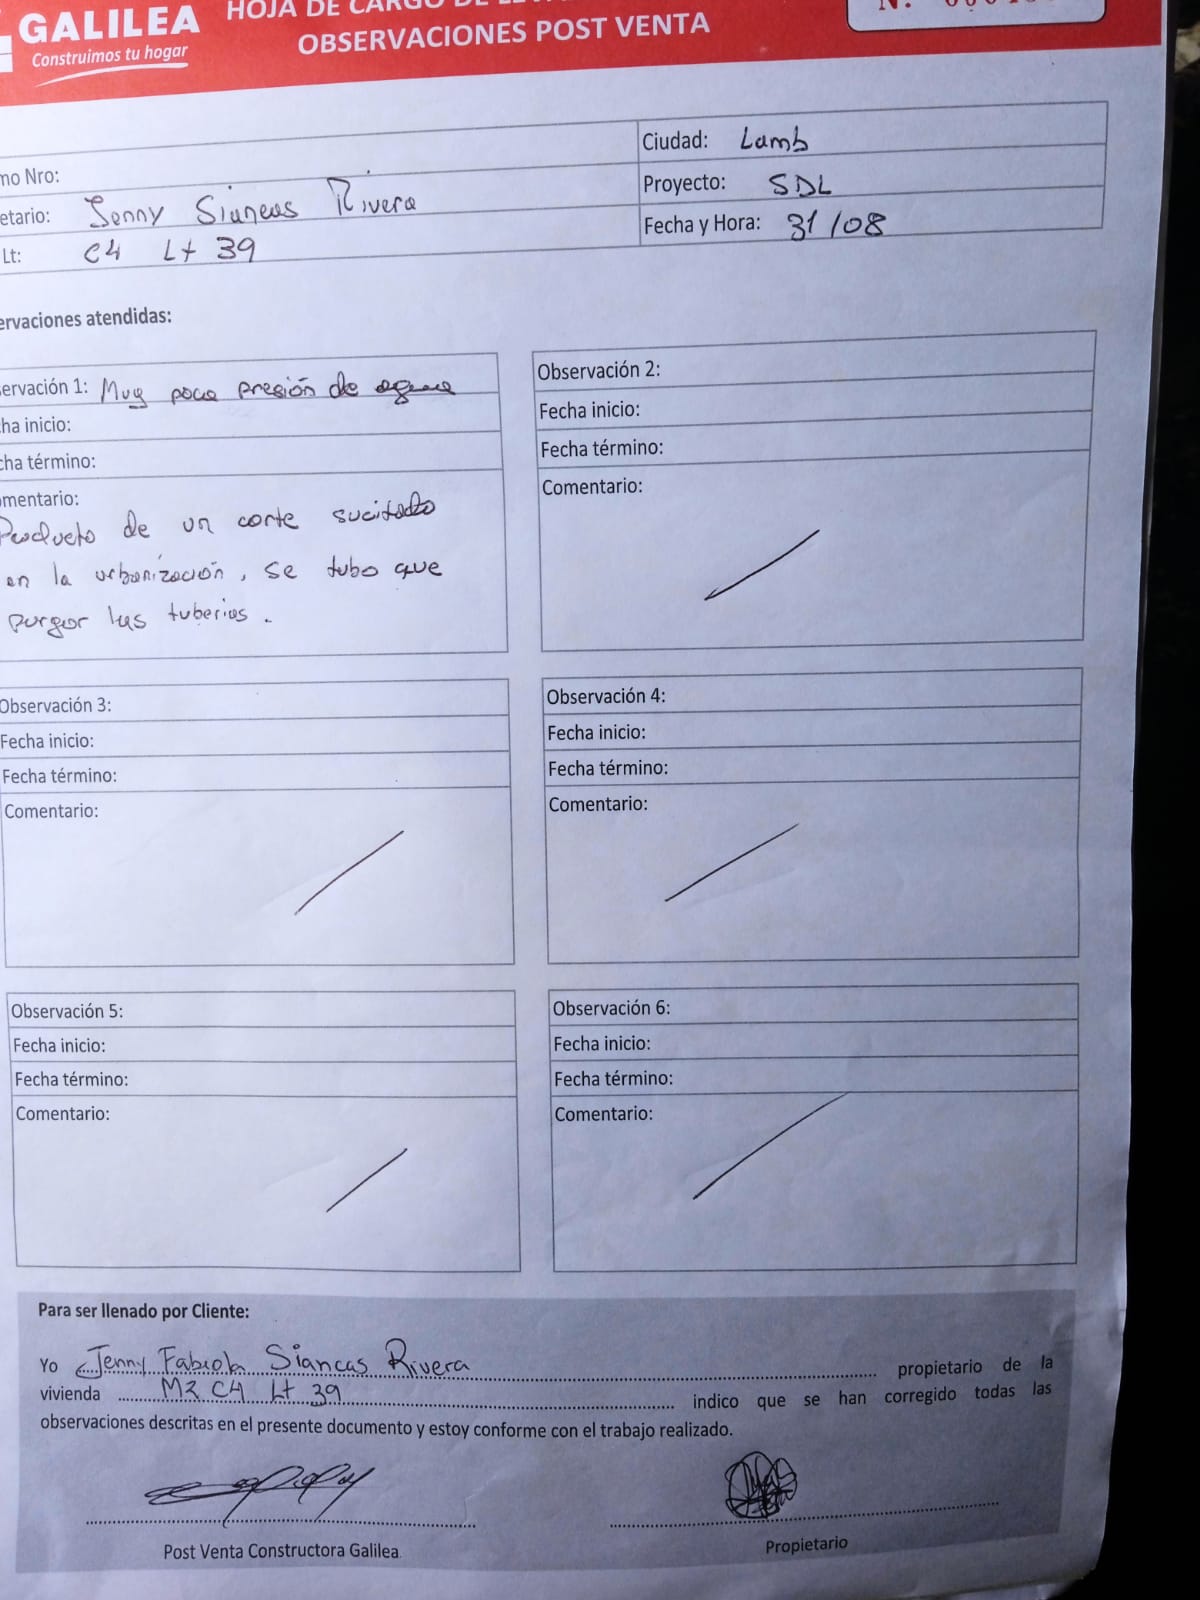 GALILEA
Construimos tu hogar
HOJA DE CARGO DE
OBSERVACIONES POST VENTA
N.
mo Nro:
Ciudad: Lamb
etario: Jenny Siancas Rivera
Proyecto: SDL
Lt: C4 Lt 39
Fecha y Hora: 31/08
ervaciones atendidas:
ervación 1: Muy poca presión de agua
ha inicio:
cha término:
omentario:
Producto de un corte sucitado
en la urbanización, se tubo que
purgar las tuberias.
Observación 2:
Fecha inicio:
Fecha término:
Comentario:
Observación 3:
Fecha inicio:
Fecha término:
Comentario:
Observación 4:
Fecha inicio:
Fecha término:
Comentario:
Observación 5:
Fecha inicio:
Fecha término:
Comentario:
Observación 6:
Fecha inicio:
Fecha término:
Comentario:
Para ser llenado por Cliente:
Yo Jenny Fabiola Siancas Rivera propietario de la
vivienda Mz C4 Lt 39 indico que se han corregido todas las
observaciones descritas en el presente documento y estoy conforme con el trabajo realizado.
Post Venta Constructora Galilea
Propietario